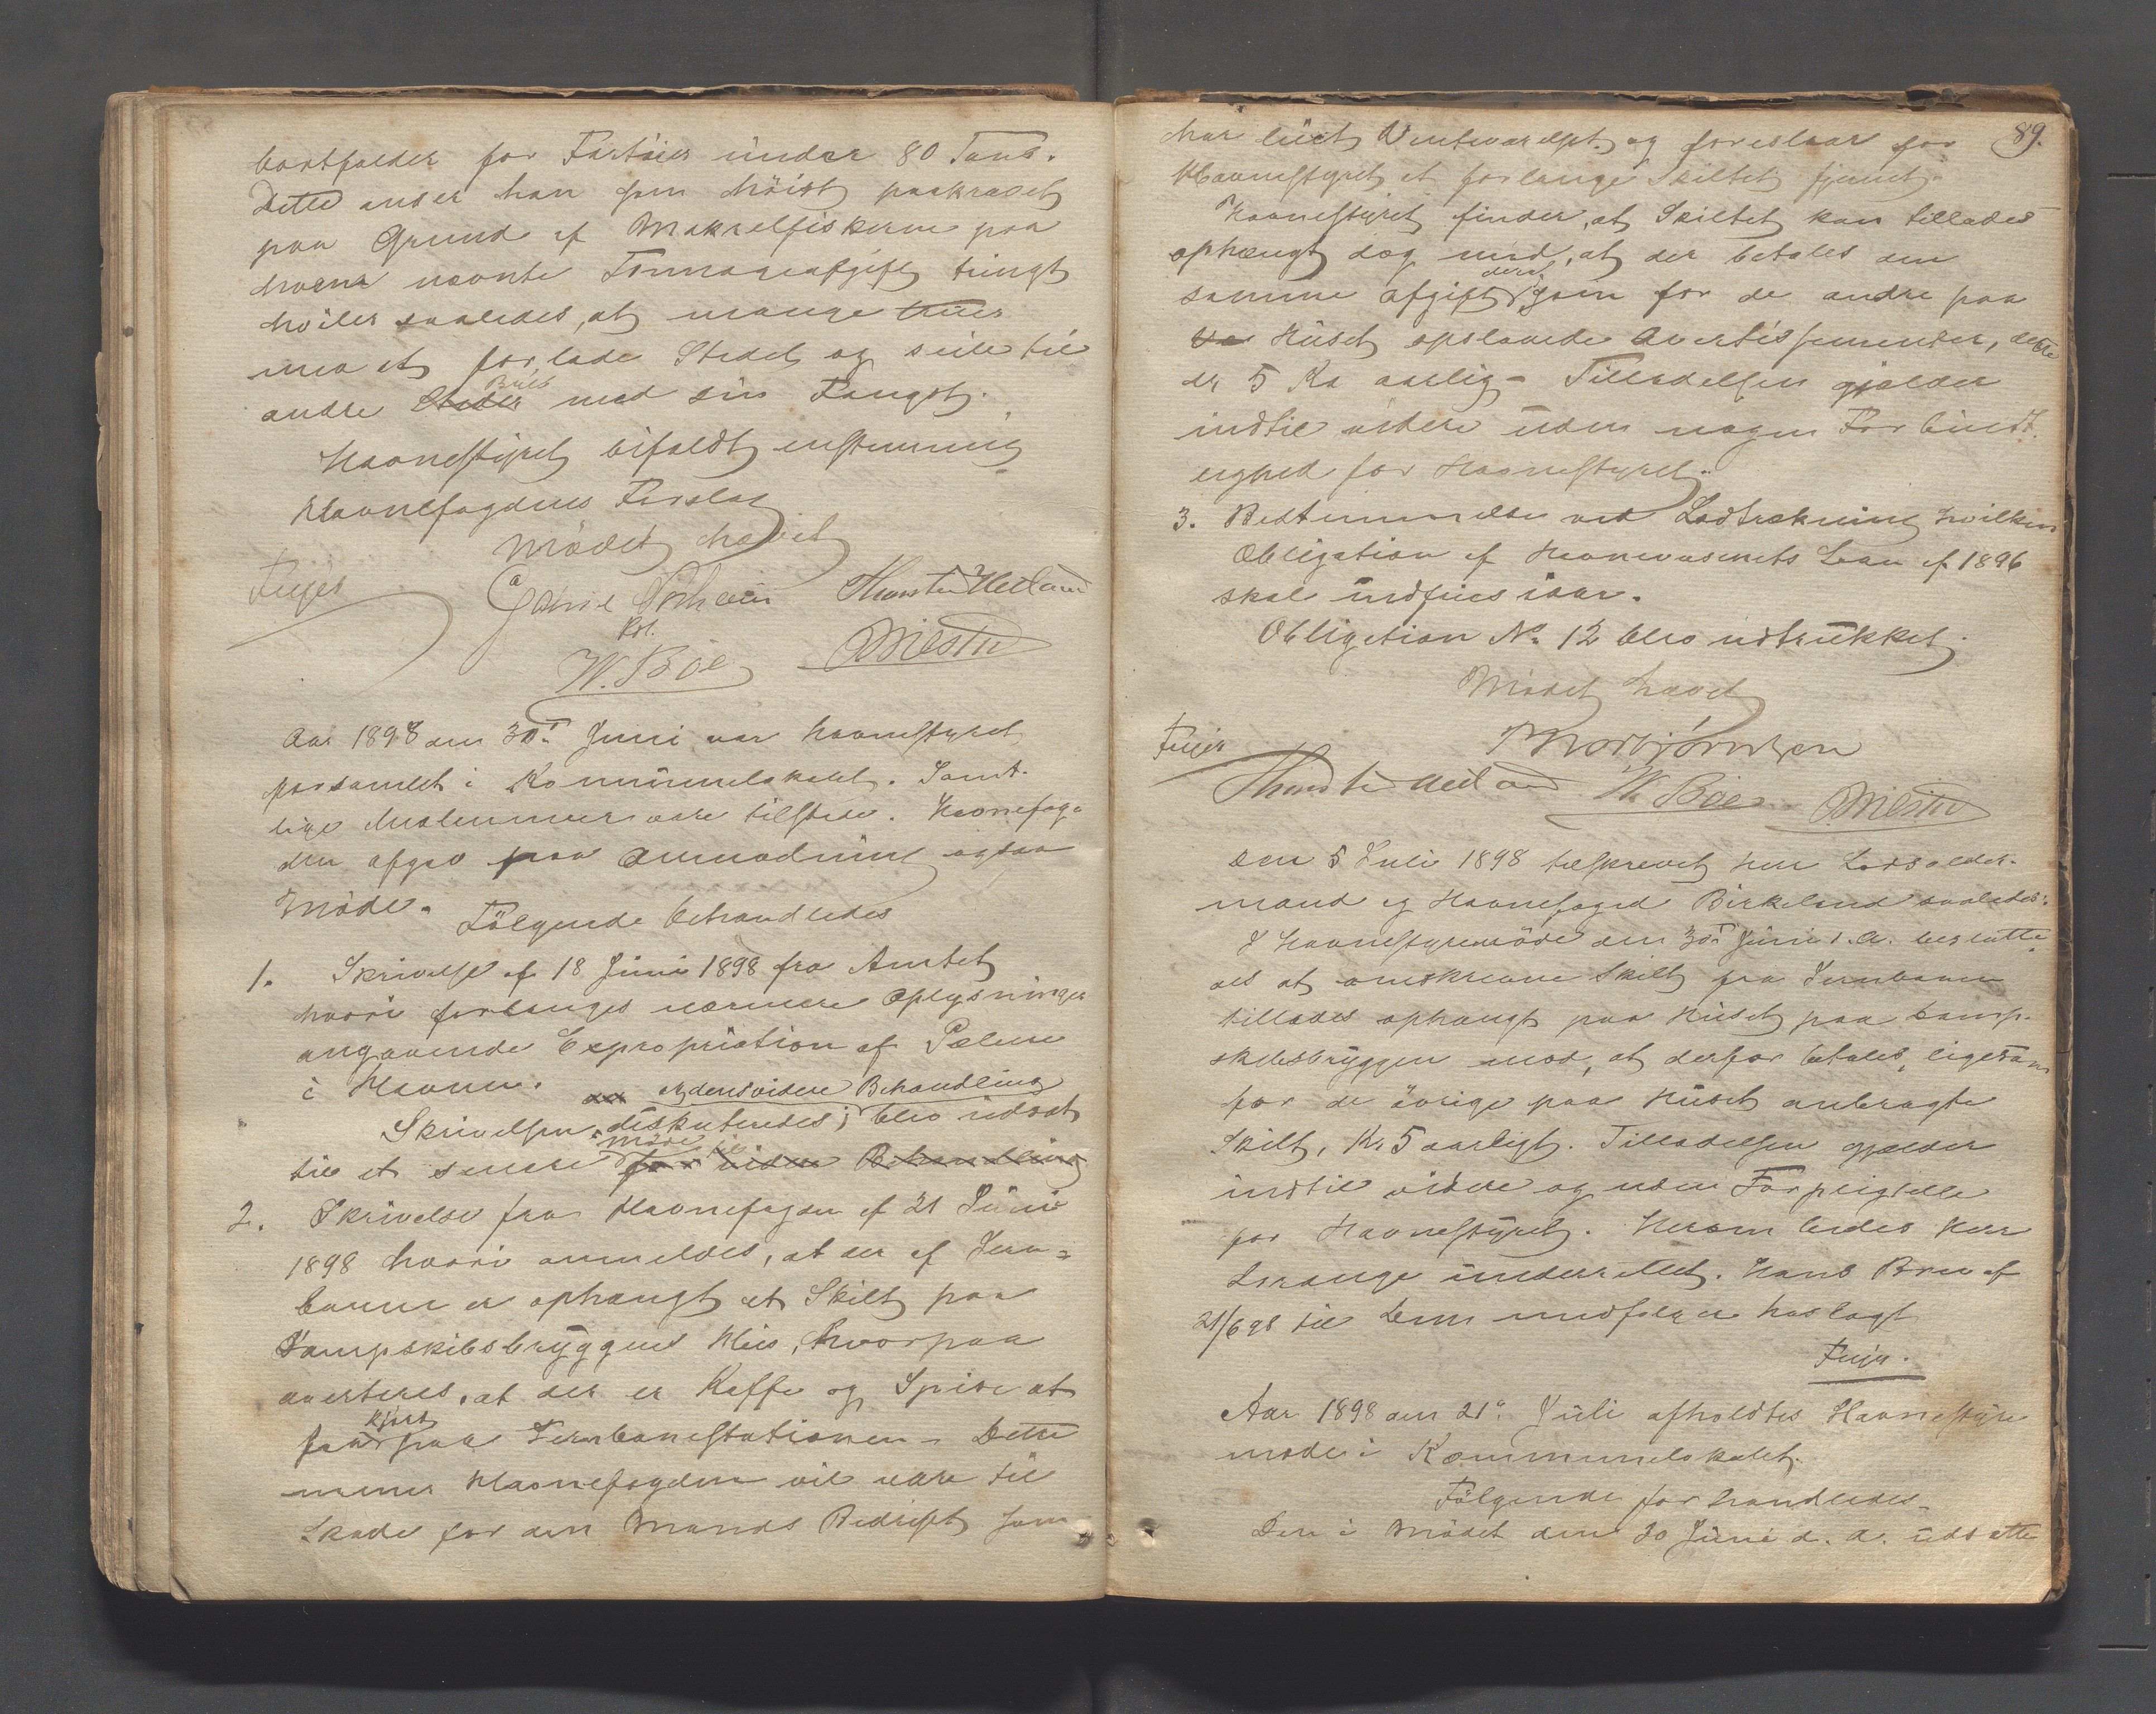 bortfalder for Fartöier under 80 Tons.
Dette anser han som höist paakrævet
paa Grund af Makrelfiskerne paa
hvem nævnte Tonnageafgift tungt
hviler saaledes, at mange
maa forlade Stedet og seile til
andre Byer med sin Fangst.
Havnestyret bifaldt enstemmig
Havnefogdens Forslag
Mödet hævet
Feyer
W. Böe
Aar 1898 den 30te Juni var Havnestyret
forsamlet i Kommunelokalet. Samt-
lige Medlemmer vare tilstede. Havnefog-
den afgav paa Anmodning ogsaa
Möde.
Fölgende behandledes
1. Skrivelse af 18 Juni 1898 fra Amtet
hvori forlanges nærmere Oplysninger
angaaende Expropriation af Pælene
i Havnen.
og dens videre Behandling
Skrivelsen diskuteredes; blev udsat
til et senere möde for videre Behandling
2. Skrivelse fra Havnefogden af 21 Juni
1898 hvori anmeldes, at der af Jern-
banen er ophængt et Skilt paa
Dampskibsbryggens Hus, hvorpaa
averteres, at der er Kaffe og Spise at
faa kjöbt paa Jernbanestationen - Dette
mener Havnefogden vil være til
Skade for den Mands Bedrift som
89.
har leiet Venteværelset og foreslaar for
Havnestyret at forlange Skiltet fjernet.
Havnestyret finder, at Skiltet kan tillades
ophængt dog mod, at der betales den
samme afgift derf. som for de andre paa
Huset opslaaede Avertissementer, dette
er 5 Kr aarlig - Tilladelsen gjælder
indtil videre uden nogen Forbindt-
lighed for Havnestyret.
3. Bestemmelse ved Lodtrækning hvilken
Obligation af Havnevæsenets Laan af 1896
skal indfries iaar.
Obligation No 12 blev udtrukket.
Mödet hævet
Feyer
Thorbjörnsen
W. Böe
Den 5 Juli 1898 tilskrevet Herr Lodsolder-
mand og Havnefoged Birkeland saaledes:
I Havnestyremöde den 30te Juni d. A. beslutte-
des at omskrevne Skilt fra Jernbanen
tillades ophængt paa Huset paa Damp-
skibsbryggen mod, at derfor betales, ligesom
for de övrige paa Huset anbragte
Skilt, Kr. 5 aarligt. Tilladelsen gjælder
indtil videre og uden Forpligtelse
for Havnestyret. Herom bedes Herr
underrettet. Hans Brev af
21/6 98 til Dem medfölger hoslagt
Feyer.
Aar 1898 den 21de Juli afholdtes Havnestyre
möde i Kommunelokalet.
Fölgende forhandledes.
Den i Mödet den 30 Juni d. A. udsatte